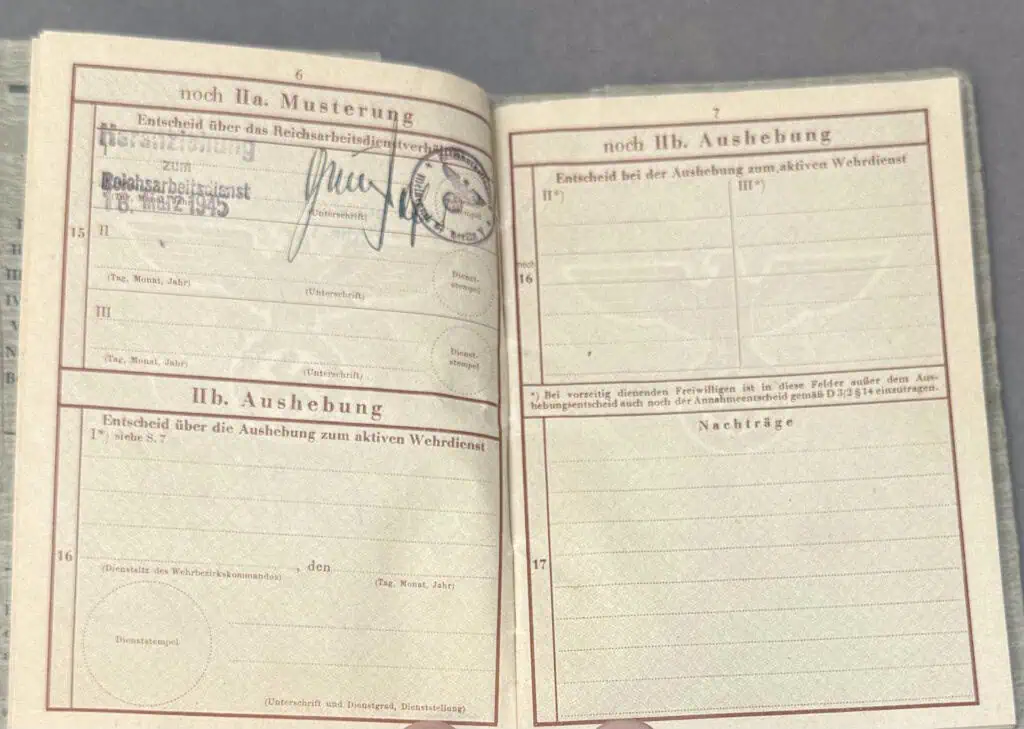 6
noch IIa. Musterung
Entscheid über das Reichsarbeitsdienstverhältnis
Heranziehung
zum
Reichsarbeitsdienst
16. März 1945
(Unterschrift)
15
II
(Tag, Monat, Jahr)
(Unterschrift)
Dienst-
stempel
III
(Tag, Monat, Jahr)
(Unterschrift)
Dienst-
stempel
IIb. Aushebung
Entscheid über die Aushebung zum aktiven Wehrdienst
I*) siehe S. 7
16
(Dienstsitz des Wehrbezirkskommandos)
, den
(Tag, Monat, Jahr)
Dienststempel
(Unterschrift und Dienstgrad, Dienststellung)
7
noch IIb. Aushebung
Entscheid bei der Aushebung zum aktiven Wehrdienst
II*)
III*)
noch
16
*) Bei vorzeitig dienenden Freiwilligen ist in diese Felder außer dem Aus-
hebungsentscheid auch noch der Annahmeentscheid gemäß D 3/2 § 14 einzutragen.
Nachträge
17